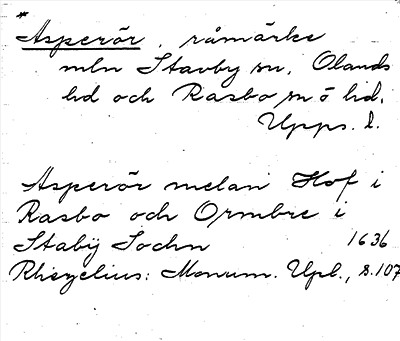 *
Asperör, råmärke
mln Stavby sn, Olands
hd och Rasbo sn o hd,
Upps. l.
Asperör melan Hof i
Rasbo och Ormbre i
Stabÿ Sochn 1636
Rhezelius: Monum. Upl., s.107